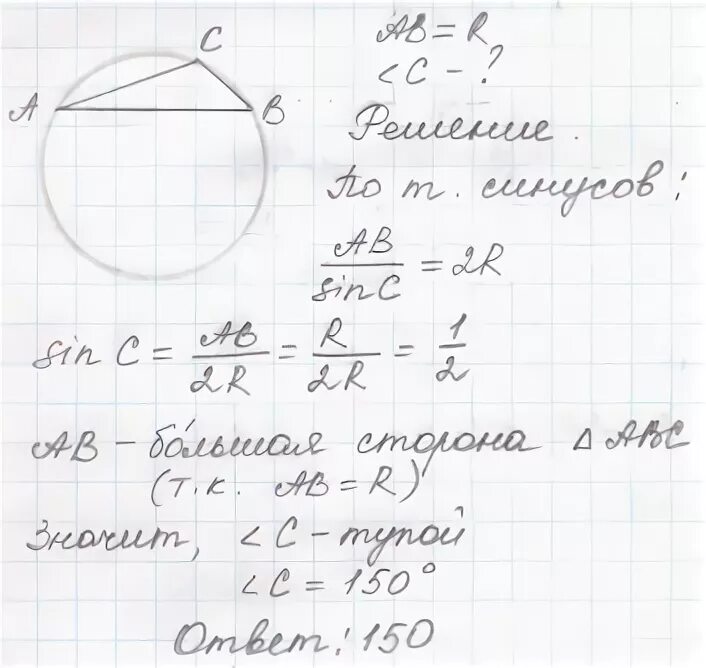 C
A
B
AB = R
<C - ?
Решение.
По т. синусов:
AB/sin C = 2R
sin C = AB/2R = R/2R = 1/2
AB - бо́льшая сторона △ ABC
(т.к. AB = R)
Значит, <C - тупой
<C = 150°
Ответ: 150